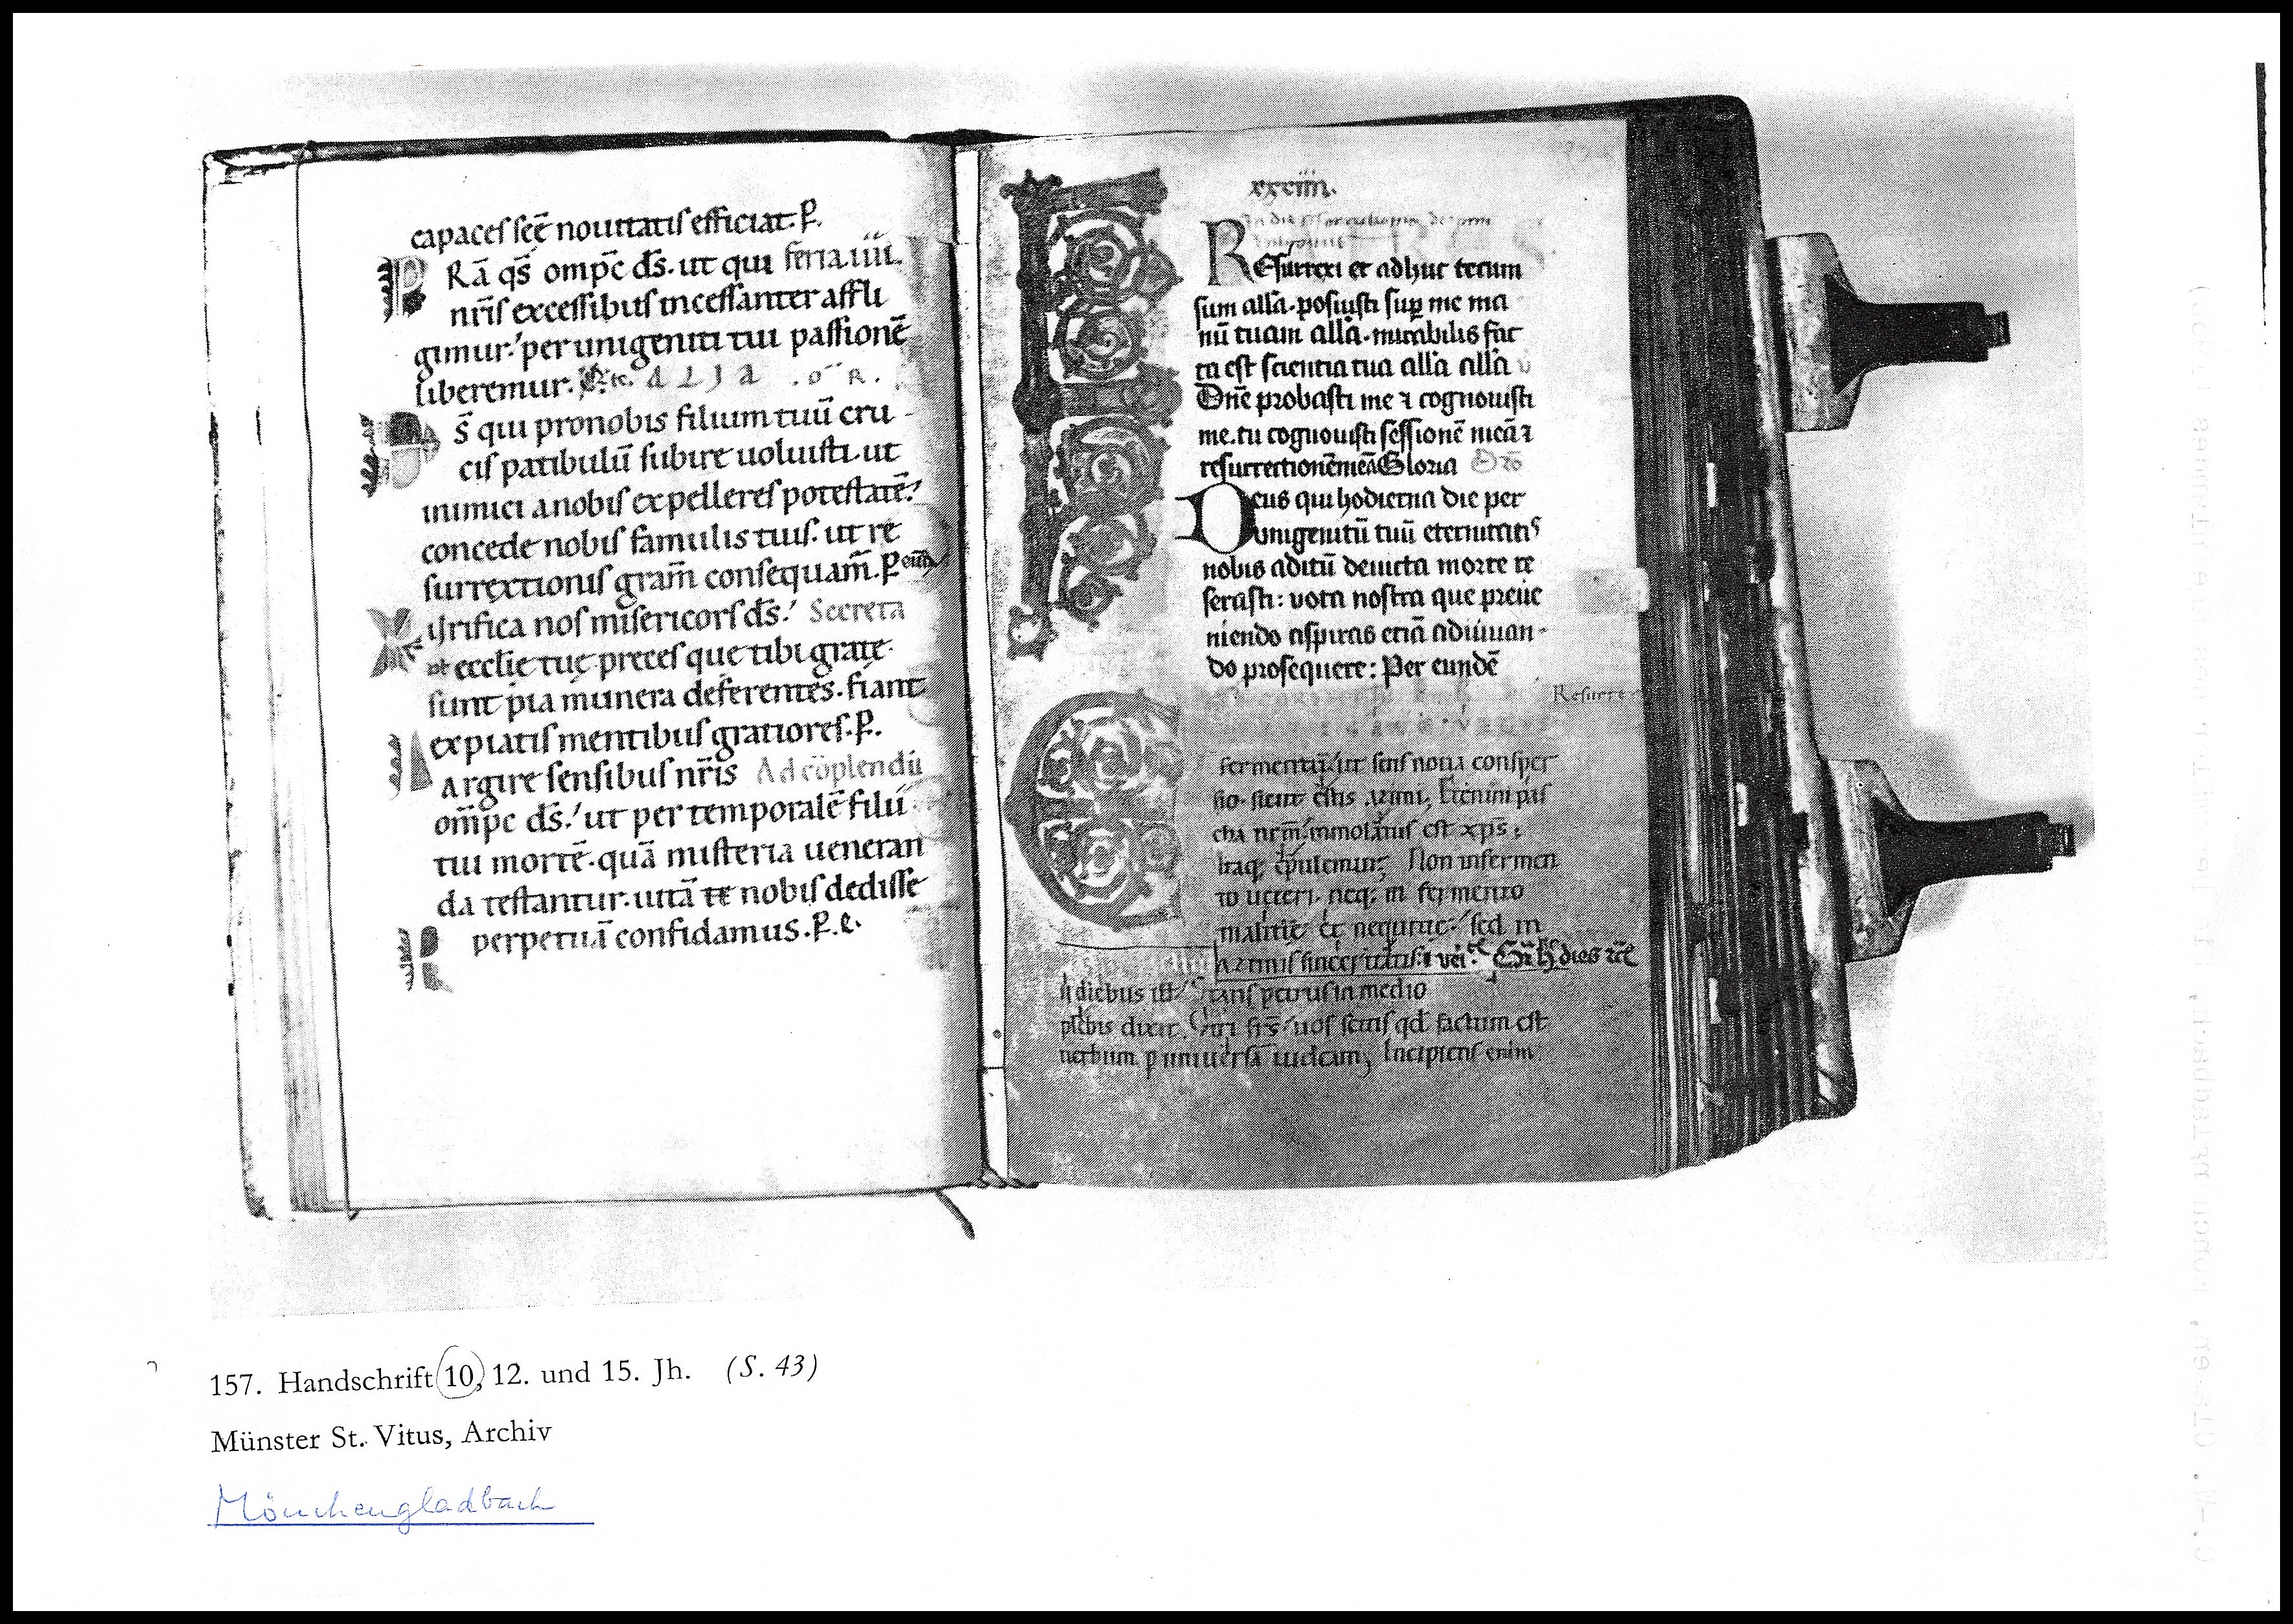 capaces sc̄ę nouitatis efficiat. P.
Rā qs̄ omp̄c ds̄. ut qui feria.iiii.
nr̄is excessibus incessanter affli
gimur.' per unigeniti tui passionē
liberemur.
s̄ qui pro nobis filium tuū cru
cis patibulū subire uoluisti. ut
inimici a nobis expelleres potestatē.'
concede nobis famulis tuis. ut re
surrectionis gram̄ consequam̄. P eund
urifica nos misericors ds̄.' Secreta
et ecclīe tuę preces que tibi grate
sunt pia munera deferentes. fiant
expiatis mentibus gratiores. P.
argire sensibus nr̄is Ad cōplendū
om̄pc ds̄.' ut per temporalē filii
tui mortē. quā misteria ueneran
da testantur. uitā te nobis dedisse
perpetuā confidamus. P. e.
xxciiii.
Resurrexi et adhuc tecum
sum allā. posuisti sup me ma
nū tuam allā. mirabilis fac
ta est scientia tua allā allā
Dn̄e probasti me ⁊ cognouisti
me. tu cognouisti sessionē meā ⁊
resurrectionē meā Gloria Oro
Deus qui hodierna die per
unigenitū tuū eternitatis
nobis aditū deuicta morte re
serasti: vota nostra que preue
niendo aspiras etiā adiuuan-
do prosequere: Per eundē
Resurre
fermentū. ut sitis noua consper
sio. sicut estis azimi. Etenim pas
cha nr̄m immolatus est xp̄s.
Itaq; epulemur; Non in fermen
to ueteri. neq; in fermento
malitię et nequitię.' sed in
azimis sinceritatis: ⁊ vēi. Gr̄ h̄ dies
n diebus ill' Stans petrus in medio
plebis dixit. Viri fr̄s uos scitis qd factum est
uerbum p uniuersā iudeam, Incipiens enim
157. Handschrift 10, 12. und 15. Jh. (S. 43)
Münster St. Vitus, Archiv
Mönchengladbach